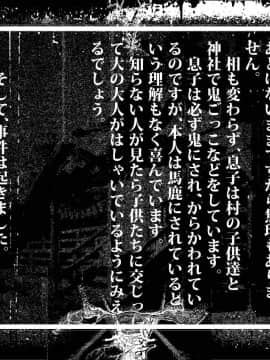 せん。
　相も変わらず、息子は村の子供達と
神社で鬼ごっこなどをしています。
　息子は必ず鬼にされ、からかわれてい
るのですが、本人は馬鹿にされていると
いう理解もなく喜んでいます。
　知らない人が見たら子供たちに交じっ
て大の大人がはしゃいでいるようにみえ
るでしょう。
　そして、事件は起きました。